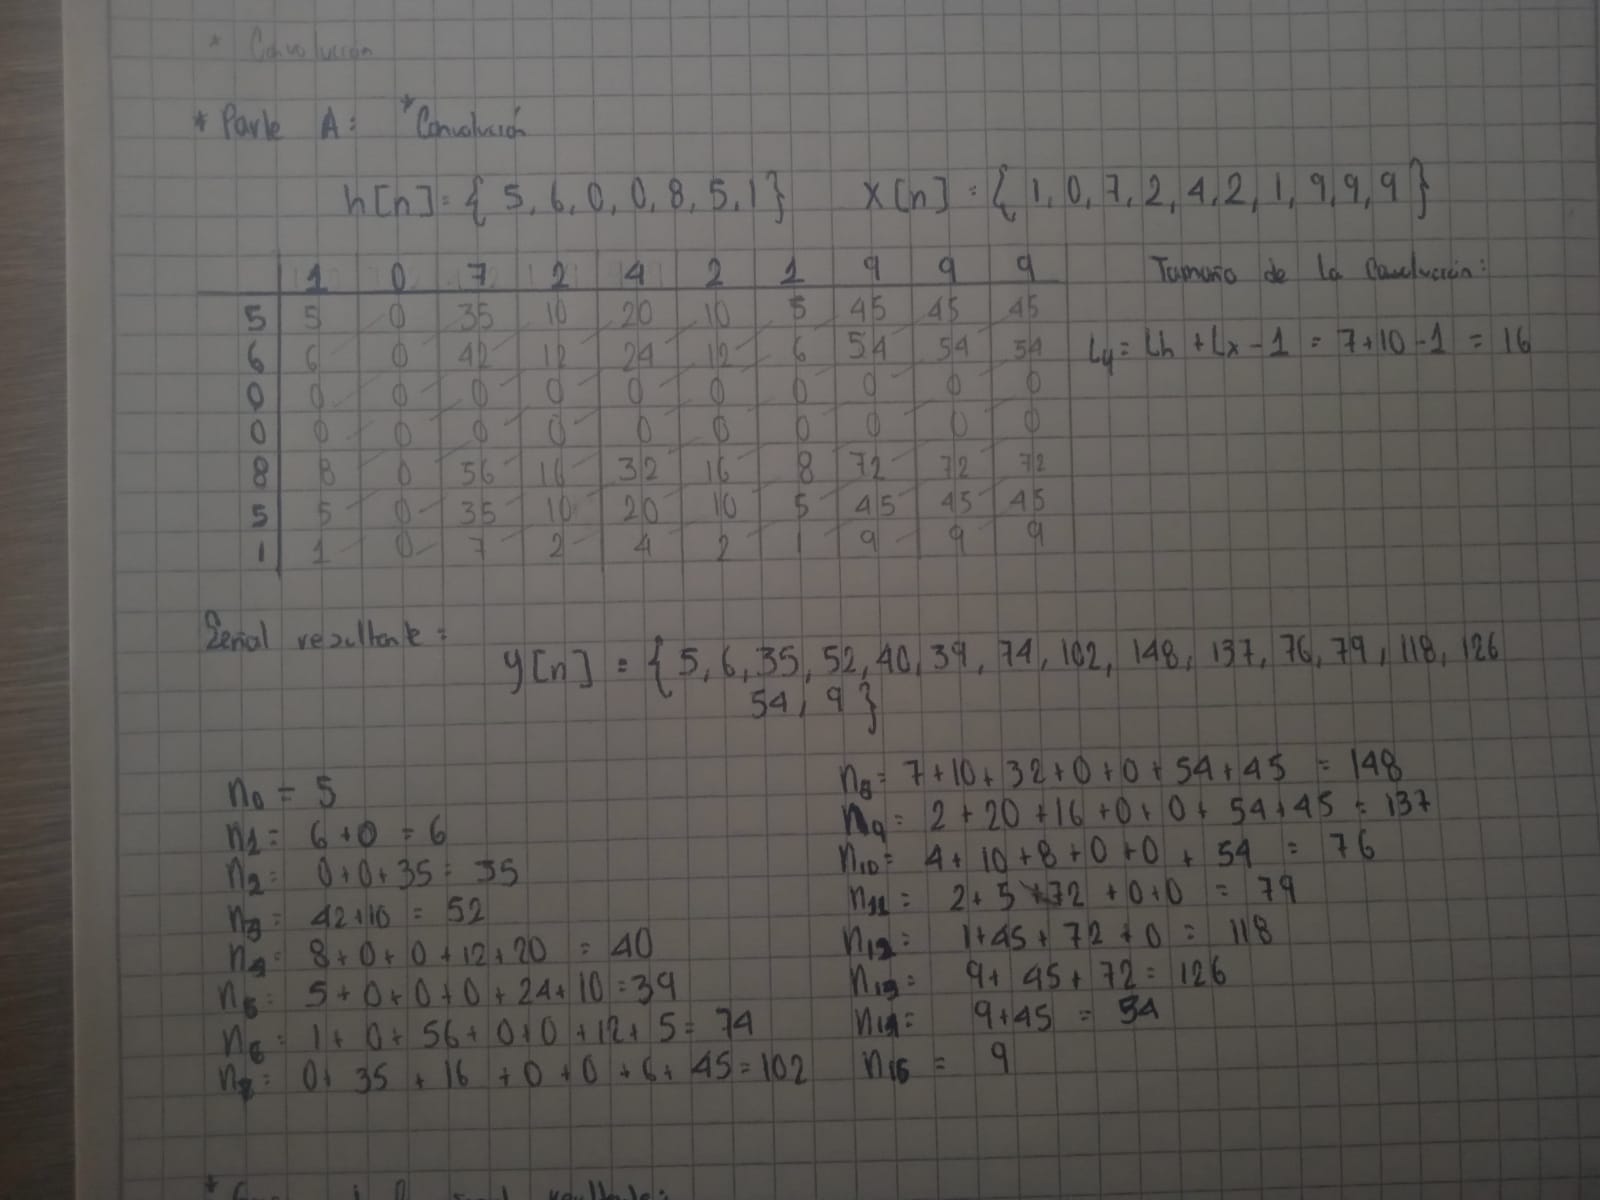 * Convolución
* Parte A: *Convolución
h[n] = { 5, 6, 0, 0, 8, 5, 1 } x[n] = { 1, 0, 7, 2, 4, 2, 1, 9, 9, 9 }
1 0 7 2 4 2 1 9 9 9 Tamaño de la Convolución:
5 5 0 35 10 20 10 5 45 45 45
6 6 0 42 12 24 12 6 54 54 54 Ly = Lh + Lx - 1 = 7+10-1 = 16
0 0 0 0 0 0 0 0 0 0 0
0 0 0 0 0 0 0 0 0 0 0
8 8 0 56 16 32 16 8 72 72 72
5 5 0 35 10 20 10 5 45 45 45
1 1 0 7 2 4 2 1 9 9 9
Señal resultante =
y[n] = { 5, 6, 35, 52, 40, 39, 74, 102, 148, 137, 76, 79, 118, 126
54, 9 }
n0 = 5
n1 = 6 + 0 = 6
n2 = 0+0+35 = 35
n3 = 42+10 = 52
n4 = 8+0+0+12+20 = 40
n5 = 5+0+0+0+24+10 = 39
n6 = 1+0+56+0+0+12+5 = 74
n7 = 0+35+16+0+0+6+45 = 102
n8 = 7+10+32+0+0+54+45 = 148
n9 = 2+20+16+0+0+54+45 = 137
n10 = 4+10+8+0+0+54 = 76
n11 = 2+5+72+0+0 = 79
n12 = 1+45+72+0 = 118
n13 = 9+45+72 = 126
n14 = 9+45 = 54
n15 = 9